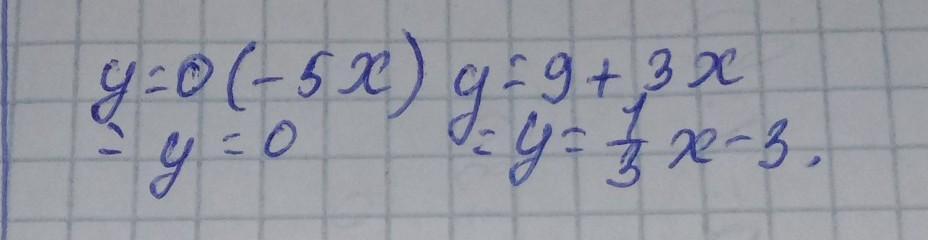 y=0(-5x) y=9+3x
= y=0 = y=1/3 x-3.